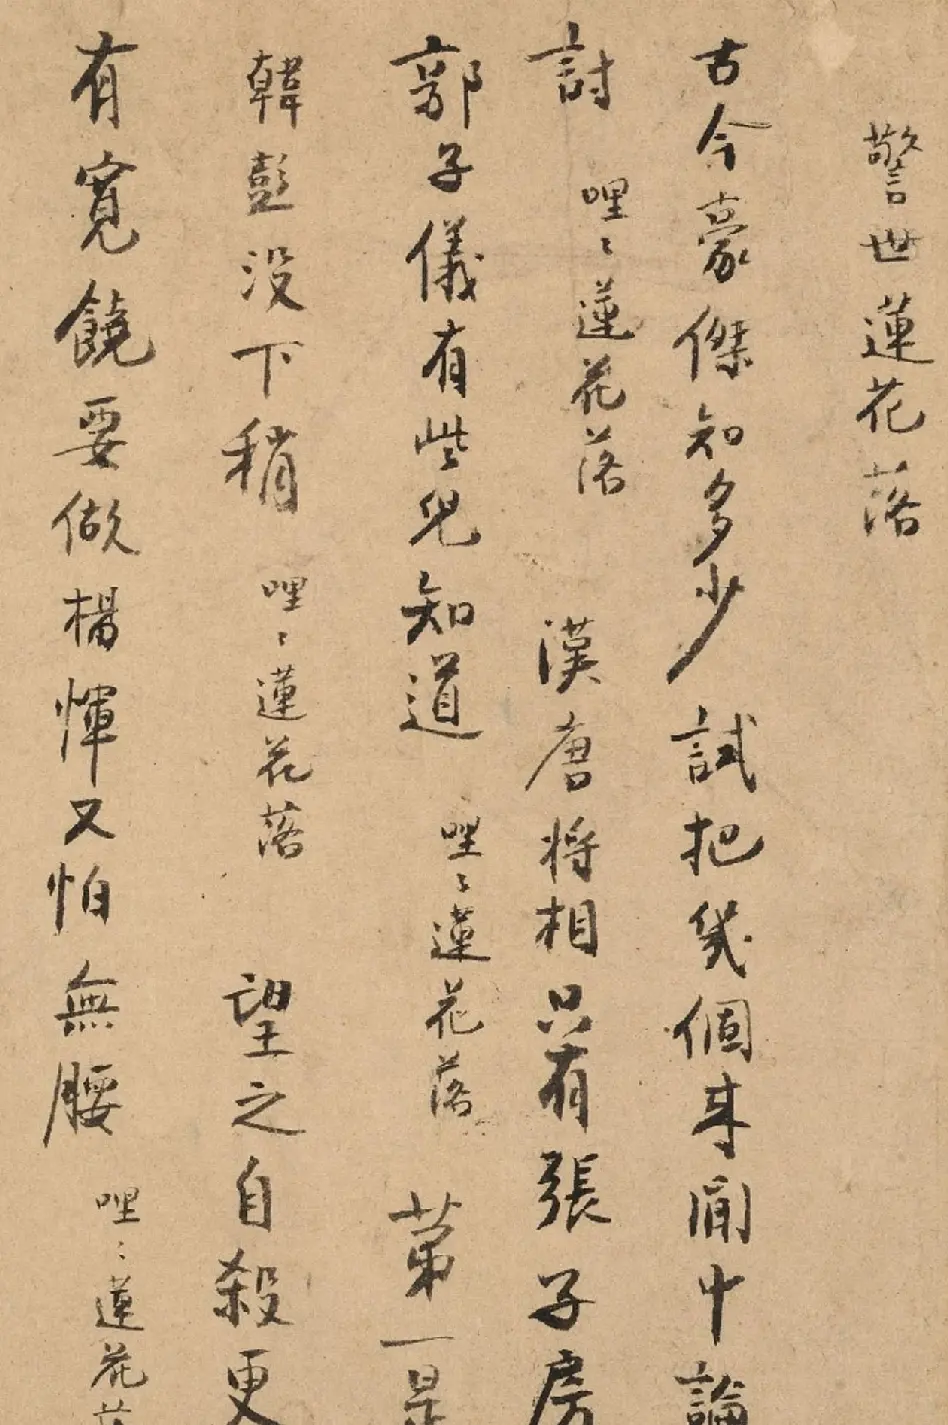 警世蓮花落
古今豪傑知多少試把幾個来閒中論
討哩〻蓮花落漢唐将相只有張子房
郭子儀有些兒知道哩〻蓮花落第一是
韓彭没下稍哩〻蓮花落望之自殺更
有寬饒要做楊惲又怕無腰哩〻蓮花落